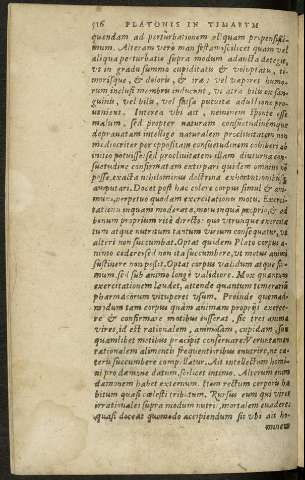 516 PLATONIS IN TIMAEUM
quendam ad perturbationem aliquam propensissi-
mum. Alteram vero manifestam scilicet quam vel
aliqua perturbatio supra modum adaucta detegit,
ut in gradu summo cupiditatis & voluptatis, ti-
morisque, & doloris, & irae: vel vapores humo-
rum inclusi membris inducunt, ut atra bilis ex san-
guinis, vel bilis, vel falsa putuita adustione pro-
veniens. Interea ubi ait, neminem sponte esse
malum, sed propter naturam consuetudinemque
depravatam intellige naturalem proclivitatem non
mediocriter per oppositam consuetudinem cohiberi ab
initio potuisse: sed proclivitatem illam diuturna con-
suetudine confirmatam extirpari quidem omnino non
posse, exacta nihilominus doctrina exhortationibusque
amputari. Docet post hac colere corpus simul & ani-
mum, perpetuo quodam exercitationis motu. Exerci-
tationis inquam moderatae, motu inquam proprio, & ad
bonum proprium recte directo: quo utrunque exercita-
tum atque nutritum tantum virium consequatur, ut
alteri non succumbat. Optat quidem Plato corpus a-
nimo cedere: sed non ita succumbere, ut motus animi
sustinere non possit. Optat corpus validum atque fir-
mum, sed sub animo longe validiore. Mox quantum
exercitationem laudet, attende quantum temerarium
pharmacorum vituperet usum. Proinde quemad-
modum tam corpus quam animam proprie exerce-
re & confirmare motibus iusserat, sic tres animae
vires, id est rationalem, animosam, cupidam, suis
quamlibet motibus praecipit conservare. Veruntamen
rationalem alimentis frequentioribus enutrire, ne ca-
teris succumbere compellatur. Ait intellectum homi-
ni pro daemone datum, scilicet intimo. Alterum enim
daemonem habet externum. Item rectum corporis ha-
bitum quasi caelesti tributum. Rursus eum qui vires
irrationales supra modum nutrit, mortalem evadere:
quasi doceat quomodo accipiendum sit ubi ait ho-
minem